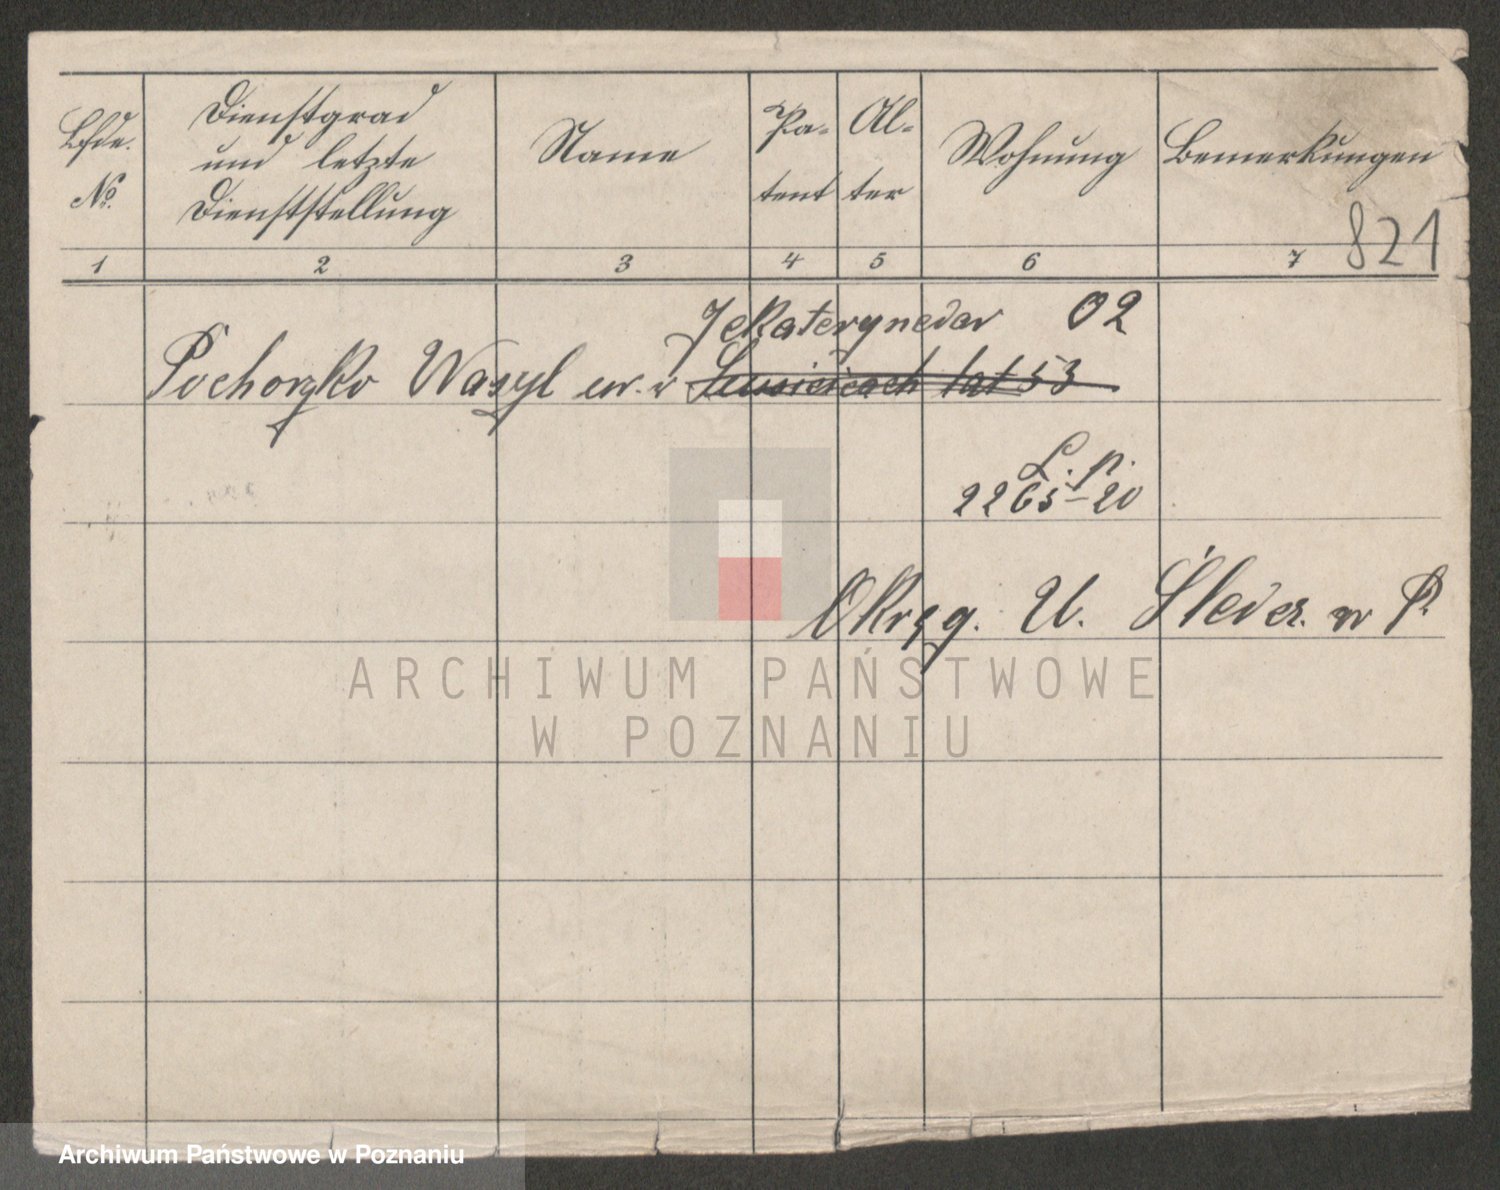 Lfde. No.
Dienstgrad und letzte Dienststellung
Name
Pa-tent
Al-ter
Wohnung
Bemerkungen
1 2 3 4 5 6 7
821
Jekaterynedar 02
Pochorzko Wasyl ur. w lat 53
L. p.
2265-20
Okręg. U. Śledcz. w P.
ARCHIWUM PAŃSTWOWE
W POZNANIU
Archiwum Państwowe w Poznaniu